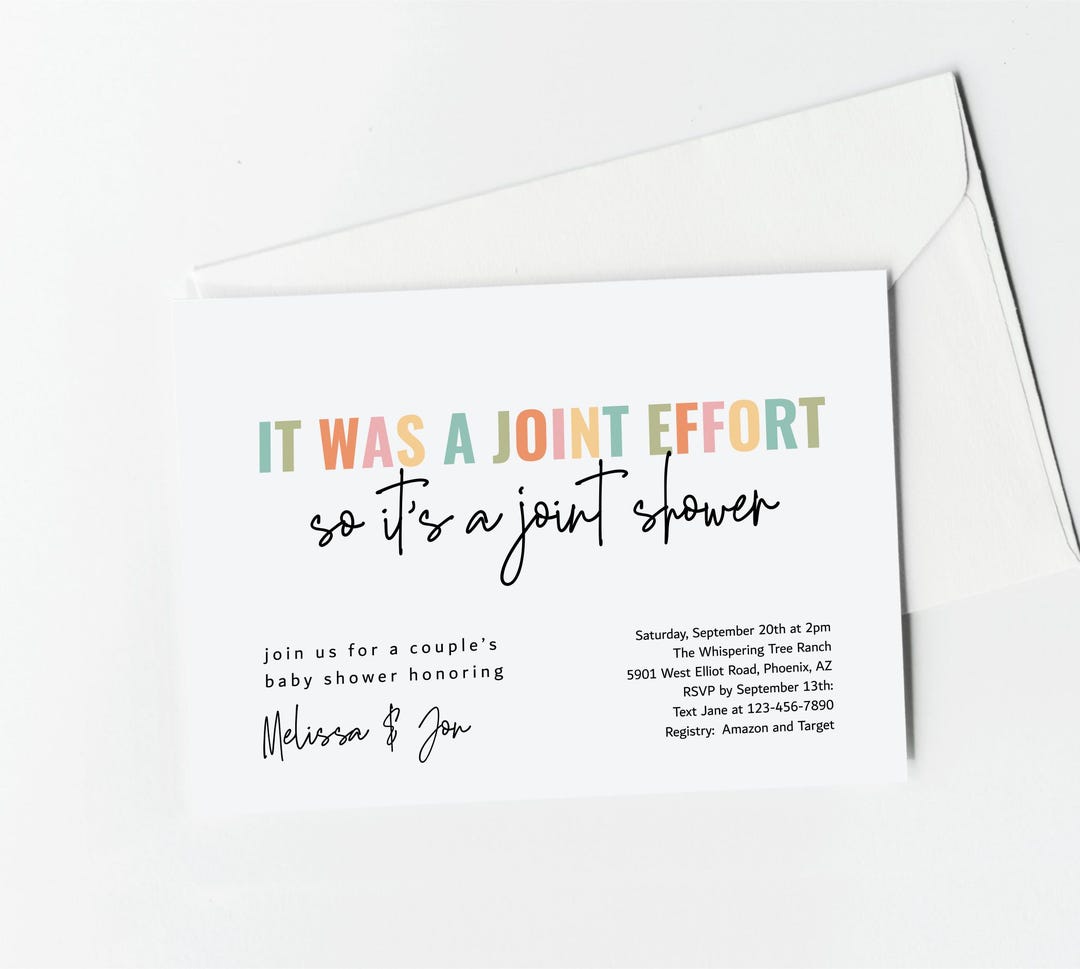 IT WAS A JOINT EFFORT
so it's a joint shower
join us for a couple's
baby shower honoring
Melissa & Jon
Saturday, September 20th at 2pm
The Whispering Tree Ranch
5901 West Elliot Road, Phoenix, AZ
RSVP by September 13th:
Text Jane at 123-456-7890
Registry: Amazon and Target